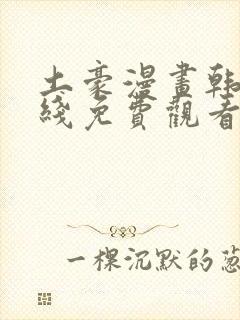 土豪漫畫韩
綫免費觀看
一棵沉默的葱